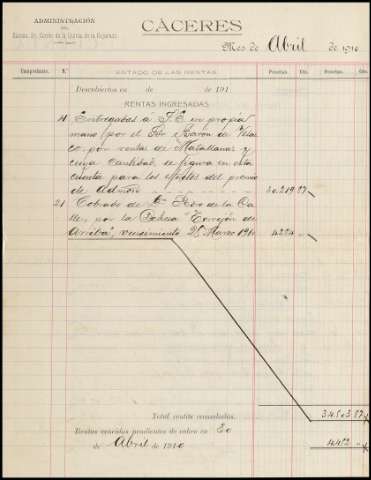 ADMINISTRACIÓN
DEL
CÁCERES
Mes de Abril de 1910
Comprobante. N.º ESTADO DE LAS RENTAS Pesetas. Cts. Pesetas. Cts.
Descubiertos en de de 191
RENTAS INGRESADAS
Entregadas a S.E. en propia
mano por el Sr. Baron de Velas
co por rentas de Matallana y
cuya cantidad se figura en esta
cuenta para los efectos del premio
de admón 30.219 87
21 Cobrado de Dn. Pedro de la Ca
lle, por la Dehesa "Torrejón de
Arriba", vencimiento 25 Marzo 1910 4284
Total rentite consolardos. 34503 87
Rentas vencidas pendientes de cobro en 30
de Abril de 1910 4452